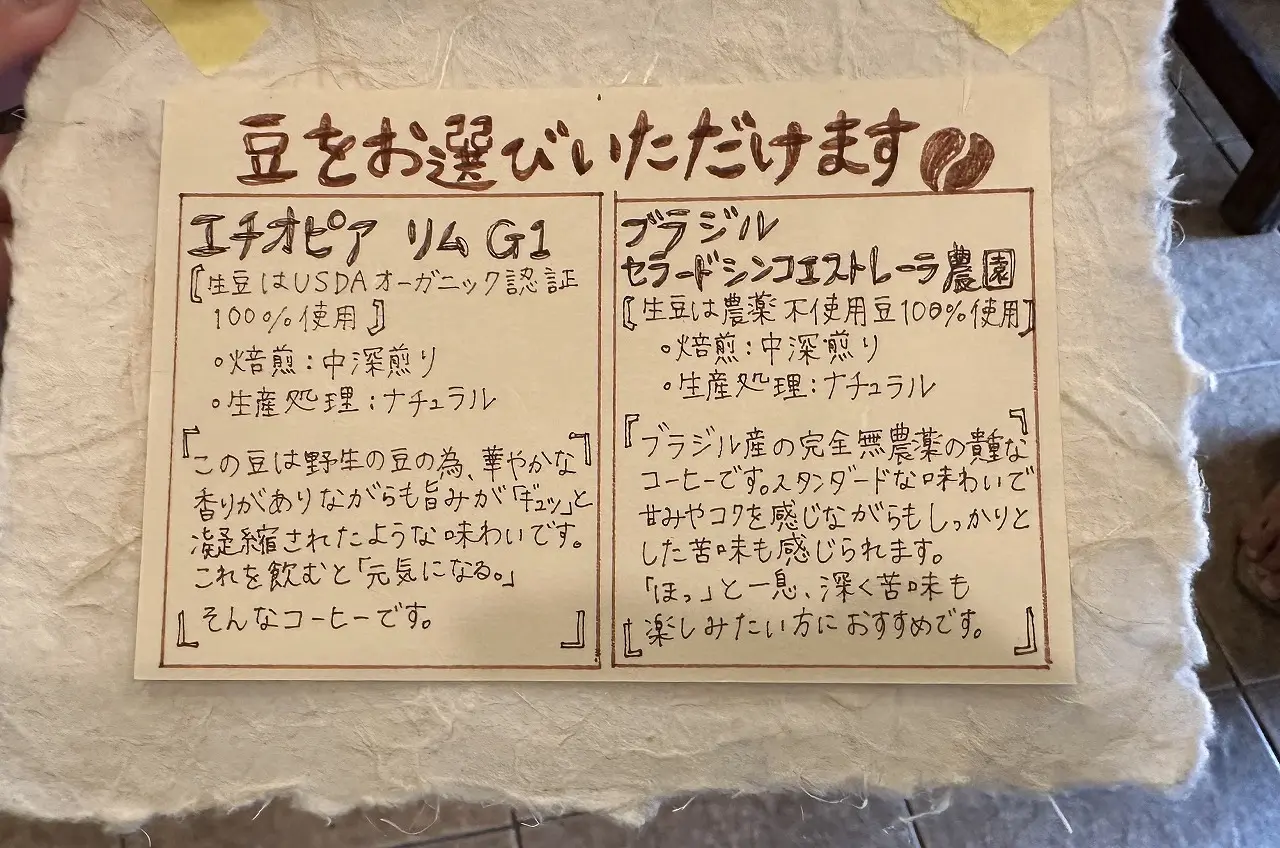 豆をお選びいただけます
エチオピア リム G1
【生豆はUSDAオーガニック認証
100%使用】
・焙煎：中深煎り
・生産処理：ナチュラル
この豆は野生の豆の為、華やかな
香りがありながらも旨みが「ギュッ」と
凝縮されたような味わいです。
これを飲むと「元気になる。」
そんなコーヒーです。
ブラジル
セラードシンコエストレーラ農園
【生豆は農薬不使用豆100%使用】
・焙煎：中深煎り
・生産処理：ナチュラル
ブラジル産の完全無農薬の貴重な
コーヒーです。スタンダードな味わいで
甘みやコクを感じながらもしっかりと
した苦味も感じられます。
「ほっ」と一息、深く苦味も
楽しみたい方におすすめです。